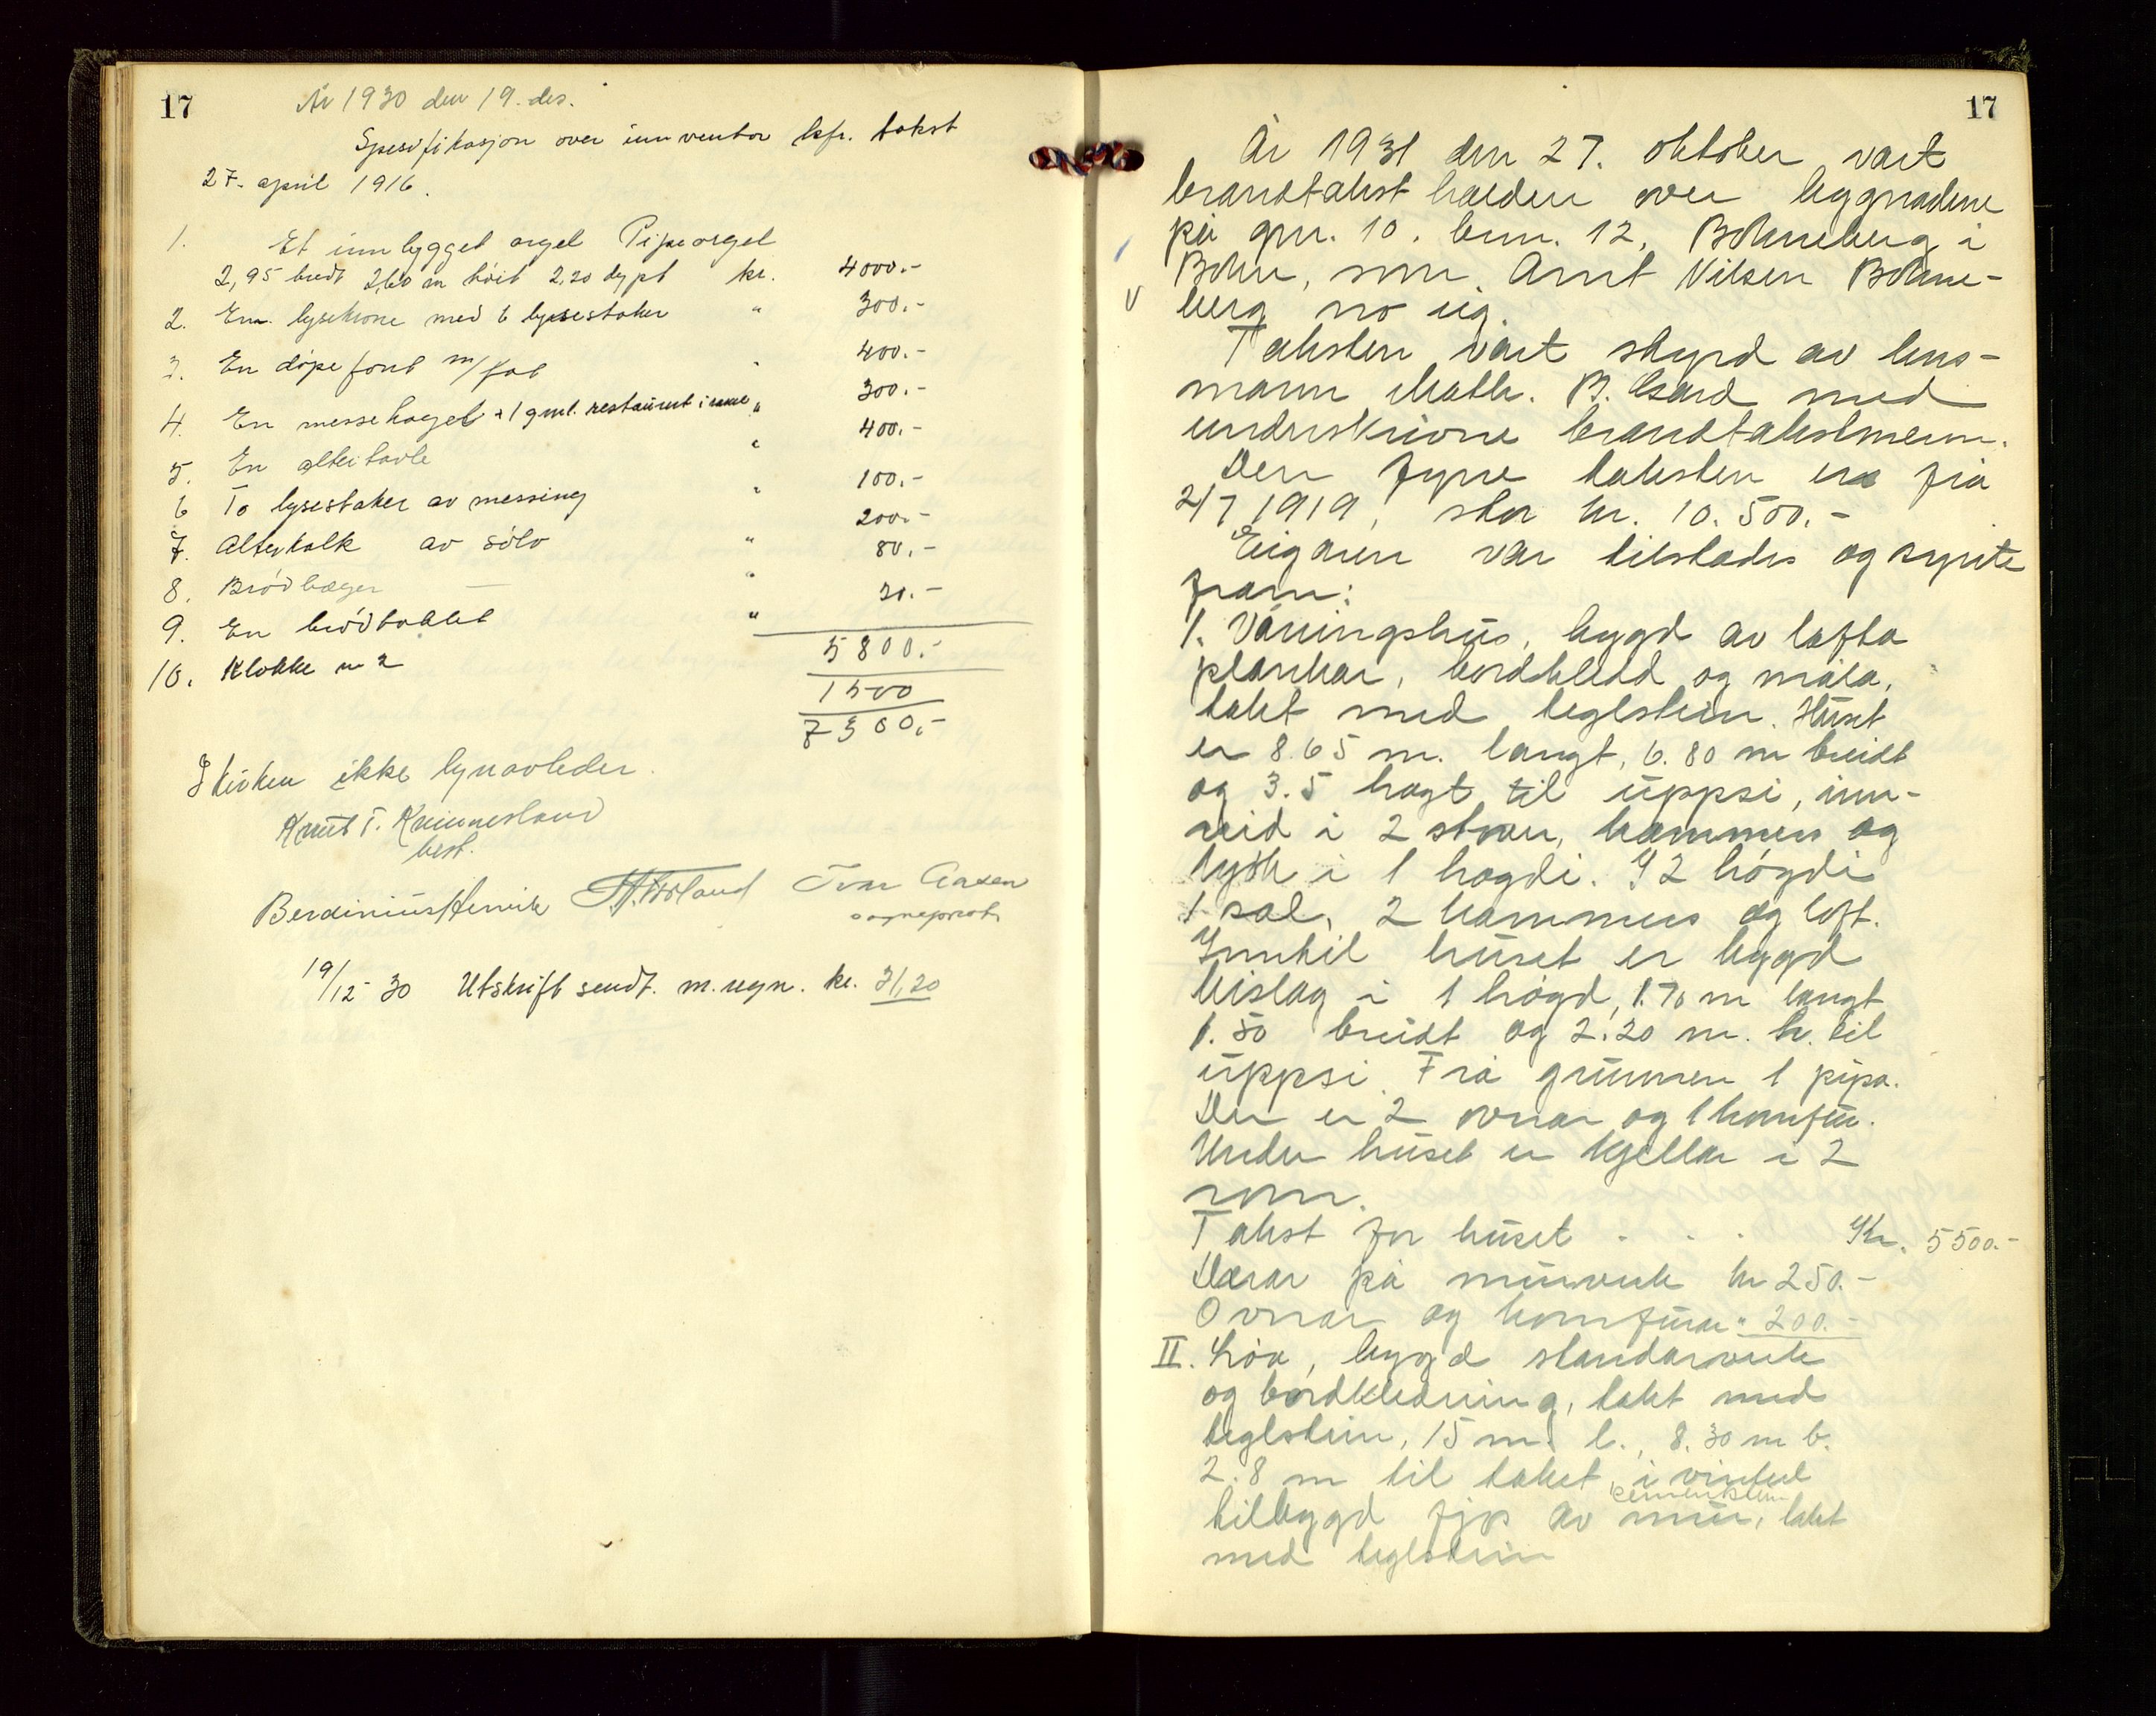 17
År 1930 den 19. des.
Spesifikasjon over innventar kfr. takst
27. april 1916.
1. Et innbygget orgel Pipeorgel
2,95 bredt 2,60 m höit 2,20 dypt kr. 4000.-
2. En lysekrone med 6 lysestaker " 300.-
3. En döpefont m/fat " 400.-
4. En messehagel + 1 gml. restaurert " 300.-
5. En altertavle " 400.-
6 To lysestaker av messing " 100.-
7. Alterkalk av sölv " 200.-
8. Brödbæger — " 80.-
9. En brödtallet " 20.-
5800.-
10. Klokke 1500
7300.-
I kirken ikke lynavleder.
Knut T. Kvinnesland
best.
Berdinius Henrik Iver Aasen
sogneprest
19/12-30 Utskrift sendt. m. regn. kr. 31,20
17
År 1931 den 27. oktober vart
brandtakst halden over bygnadene
på gnr. 10. bnr. 12, Bohneberg i
Bohn, som Arnt Nilsen Bohne-
berg no eig.
Taksten vart styrd av lens-
mann Math. B. med
underskrivne brandtakstmenn.
Den fyrre taksten er frå
2/7 1919, stor kr. 10.500.-
Eigaren var tilstades og synte
fram:
1. Våningshus, bygd av lafta
plankar, bordkledd og måla,
takt med teglstein. Huset
er 8.65 m. langt, 6.80 m breidt
og 3.5 høgt til uppsi, inn-
reid i 2 stover, kammers og
kjøk i 1 høgdi. I 2 högdi
1 sal, 2 kammers og loft.
Inntil huset er bygd
bislag i 1 högd, 1.70 m langt
1.50 breidt og 2.20 m. h. til
uppsi. Frå grunnen 1 pipa.
Der er 2 ovnar og 1 komfur.
Under huset er kjellar i 2
rom.
Takst for huset . . . Kr. 5500.-
Derav på murverk kr 250.-
Ovnar og komfurar " 200.-
II. Löa, bygd standarverk
og bordkledning, takt med
teglstein, 15 m. l., 8.30 m b.
2.8 m til taket, i vinkel
sementstein
tilbygd fjos av mur, takt
med teglstein